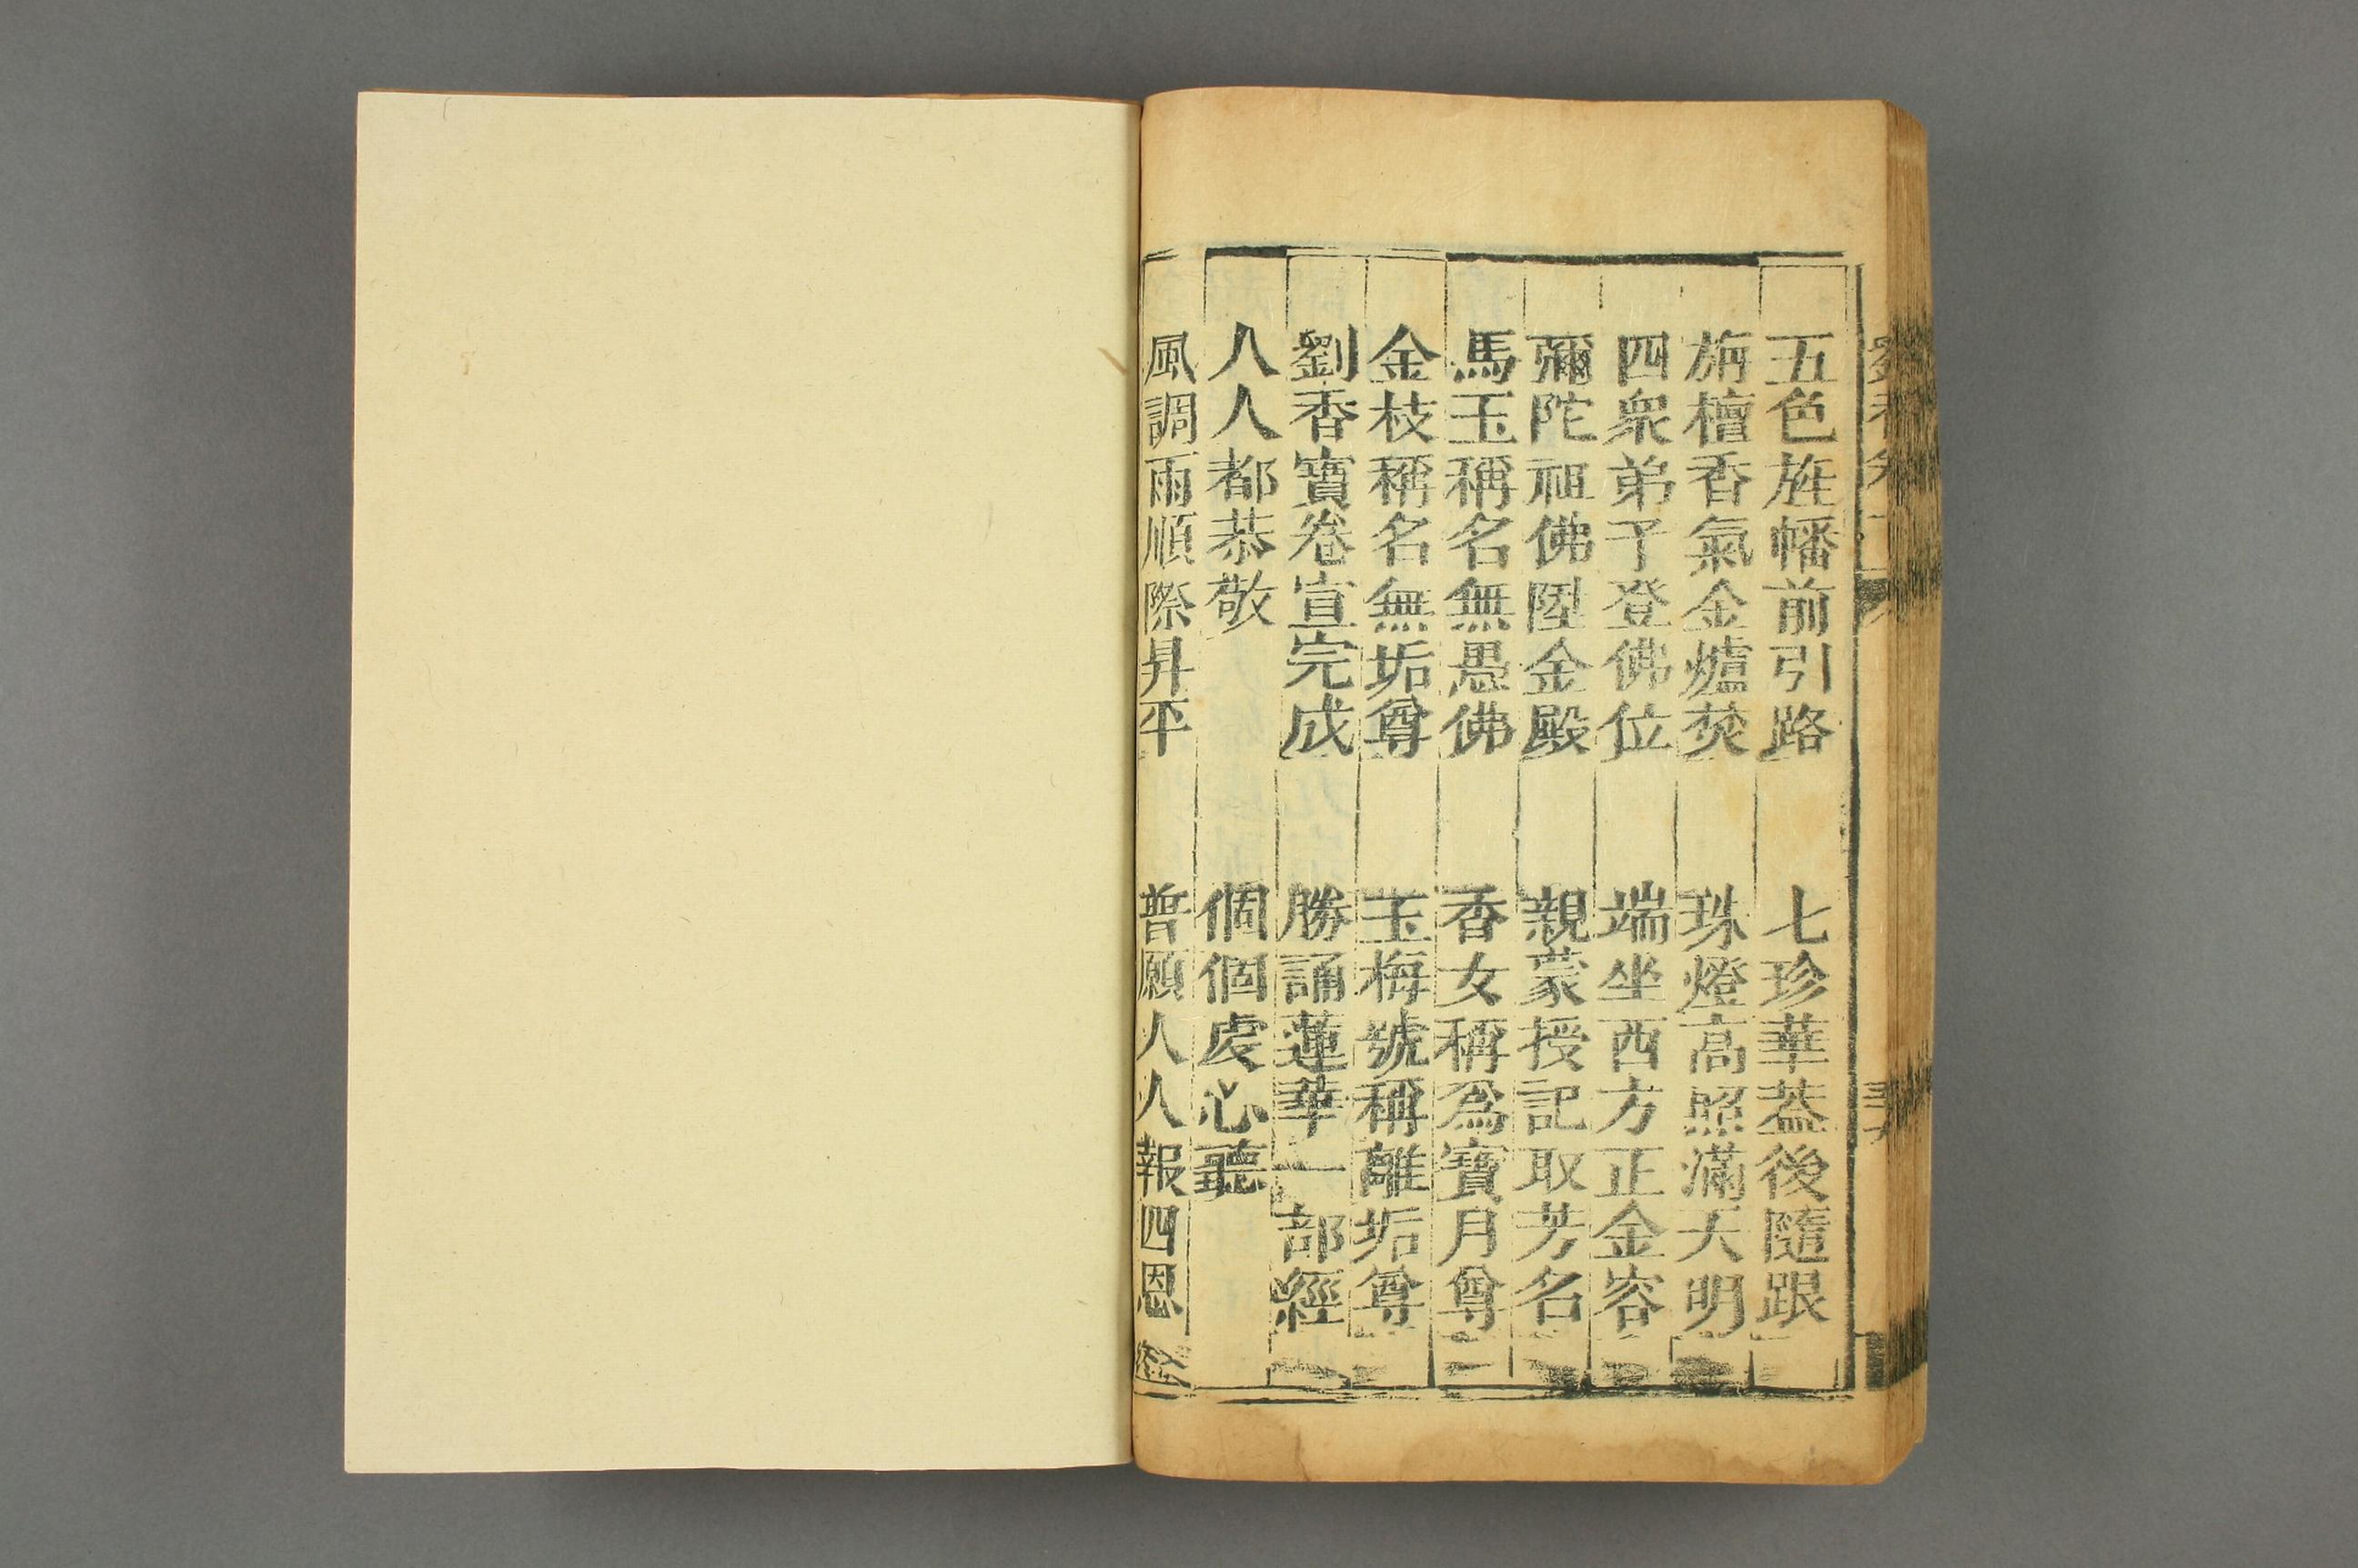 五色旌幡前引路　七珍華葢後隨跟
旃檀香氣金爐焚　珠燈高照滿天明
四衆弟子登佛位　端坐西方正金容
彌陀祖佛陞金殿　親蒙授記取芳名
馬玉稱名無愚佛　香女稱爲寶月尊
金枝稱名無垢尊　玉梅號稱離垢尊
劉香寶卷宣完成　勝誦蓮華一部經
人人都恭敬　個個虔心聽
風調雨順際昇平　普願人人報四恩